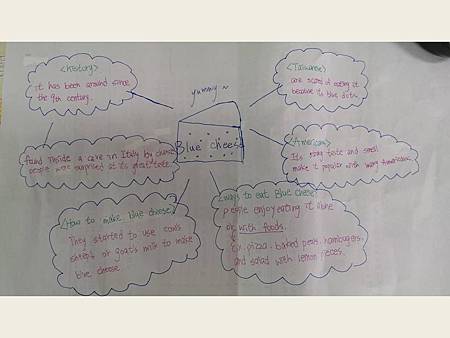 <history>
it has been around since
the 9th century.
found inside a cave in Italy by chance
people were surprised at its great taste
<How to make blue cheese>
They started to use cow's
goat's milk to make
blue cheese
yummy ~
Blue cheese
<Taiwanese>
are scared of eating it
because its blue dots.
<Americans>
Its taste and smell
make it popular with many Americans.
<ways to eat Blue chese>
people enjoy eating it alone
or with foods.
pizza, baked pears, hambugers,
and salad with lemon pieces.